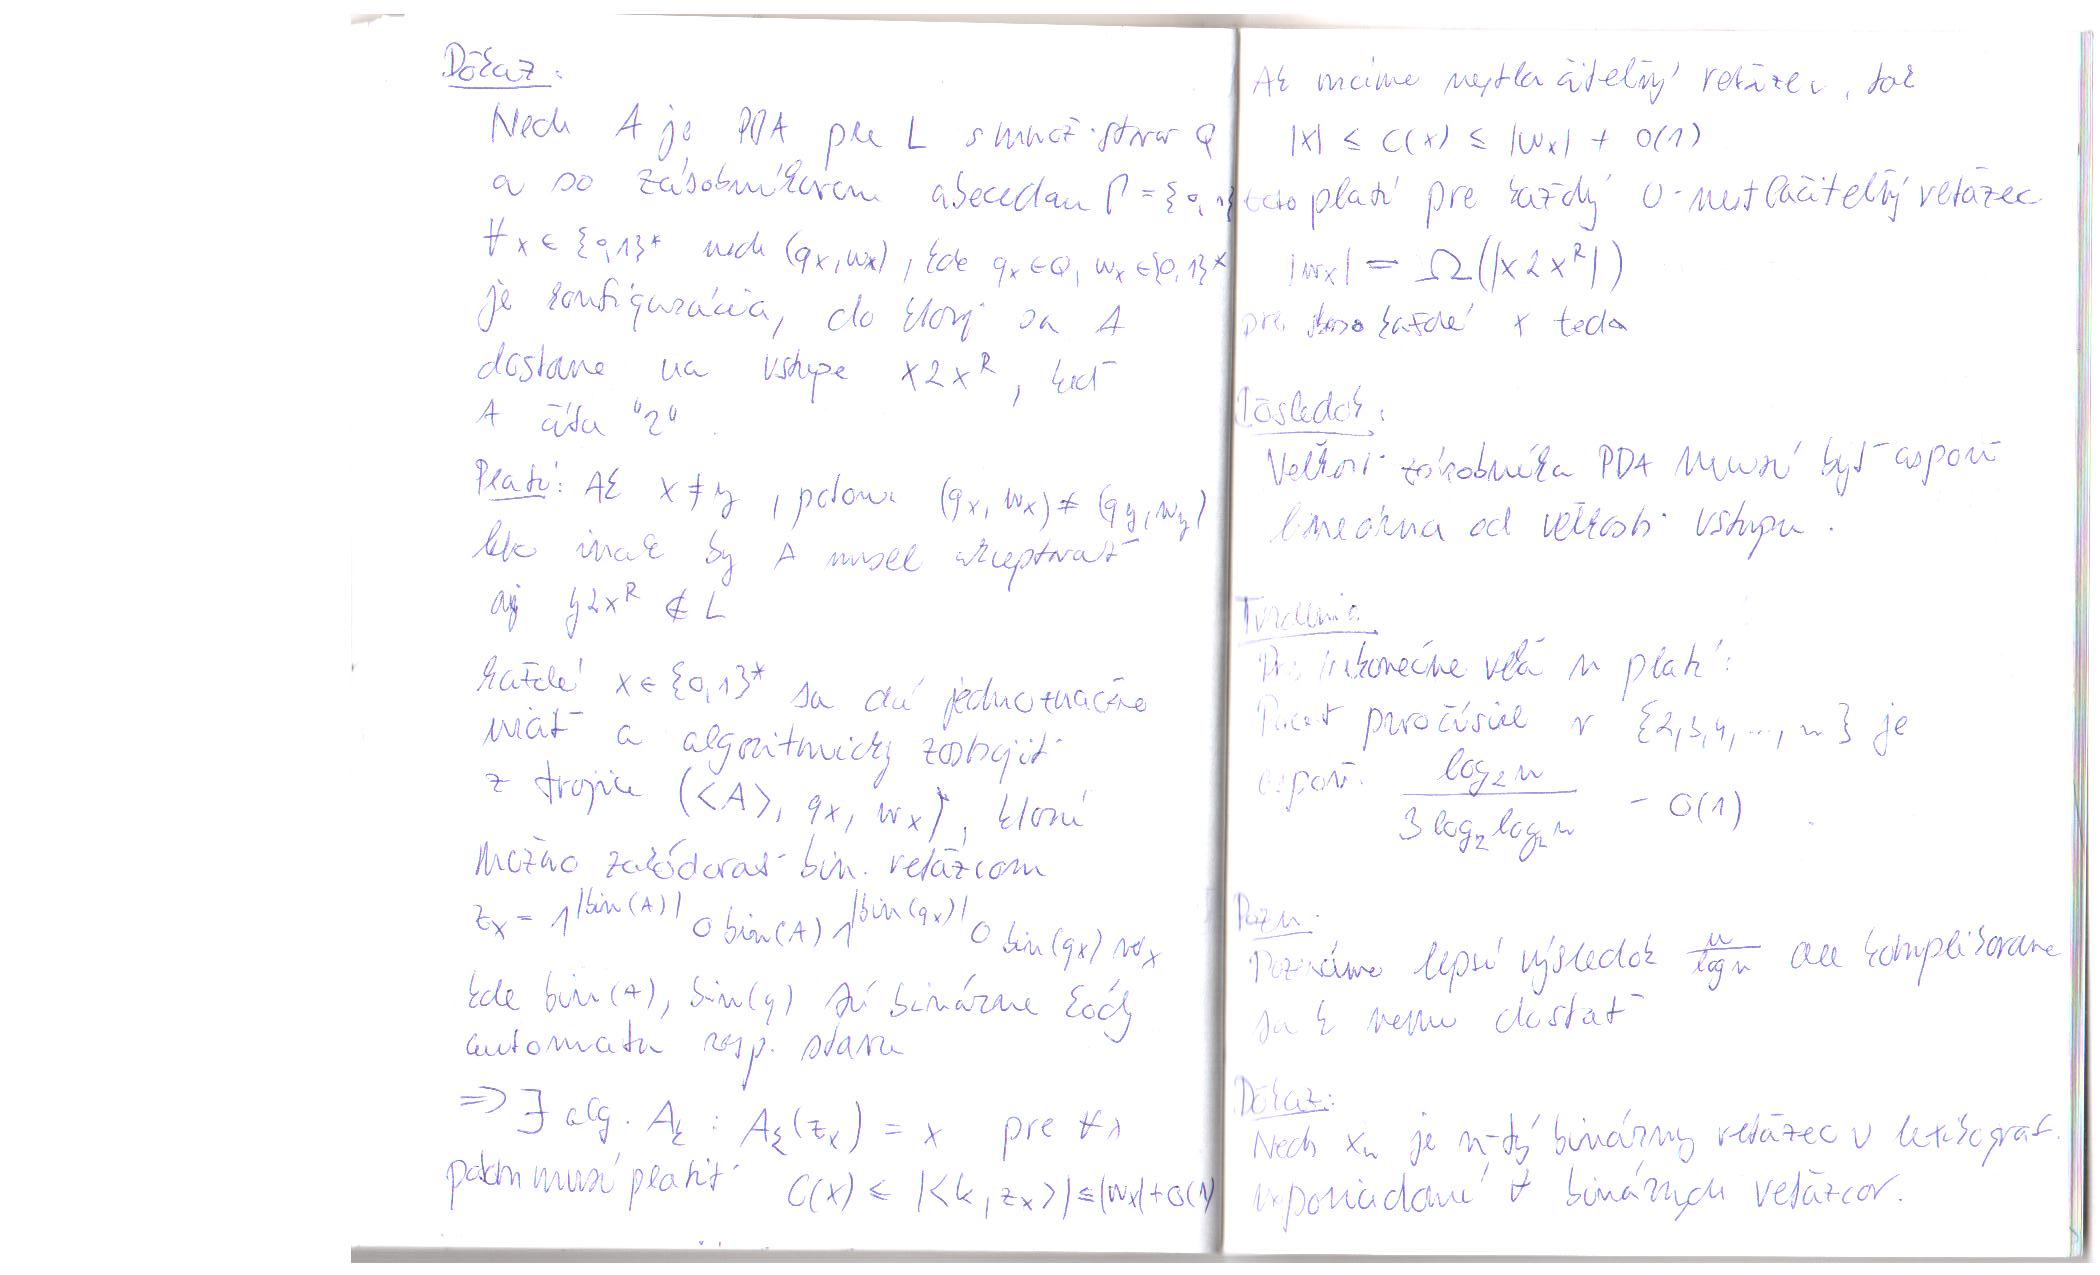 Dôkaz:
Nech A je PDA pre L s množ. stavov Q
a so zásobníkovou abecedou Γ = {0,1}
∀x ∈ {0,1}* nech (qx, wx), kde qx ∈ Q, wx ∈ {0,1}*
je konfigurácia, do ktorej sa A
dostane na vstupe x2x^R, keď
A číta "2".
Platí: Ak x ≠ y, potom (qx, wx) ≠ (qy, wy)
lebo inak by A musel akceptovať
aj y2x^R ∉ L
Každé x ∈ {0,1}* sa dá jednoznačne
určiť a algoritmicky zostrojiť
z trojice (<A>, qx, wx), ktorú
možno zakódovať bin. reťazcom
zx = 1^|bin(A)| 0 bin(A) 1^|bin(qx)| 0 bin(qx) wx
kde bin(A), bin(q) sú binárne kódy
automatu resp. stavu
⇒ ∃ alg. Ak : Ak(zx) = x pre ∀x
potom musí platiť C(x) ≤ |<k, zx>| ≤ |wx| + O(1)
Ak máme nestlačiteľný reťazec, tak
|x| ≤ C(x) ≤ |wx| + O(1)
toto platí pre každý 0-nestlačiteľný reťazec
|wx| = Ω(|x2x^R|)
pre skoro každé x teda
Dôsledok:
Veľkosť zásobníka PDA musí byť aspoň
lineárna od veľkosti vstupu.
Tvrdenie
Pre nekonečne veľa n platí:
Počet prvočísiel v {2,3,4,...,n} je
aspoň log₂n / (3 log₂log₂n) - O(1)
Pozn.
Poznáme lepší výsledok n/log n ale komplikovane
sa k nemu dostať
Dôkaz:
Nech xn je n-tý binárny reťazec v lexikograf.
usporiadaní ∀ binárnych reťazcov.